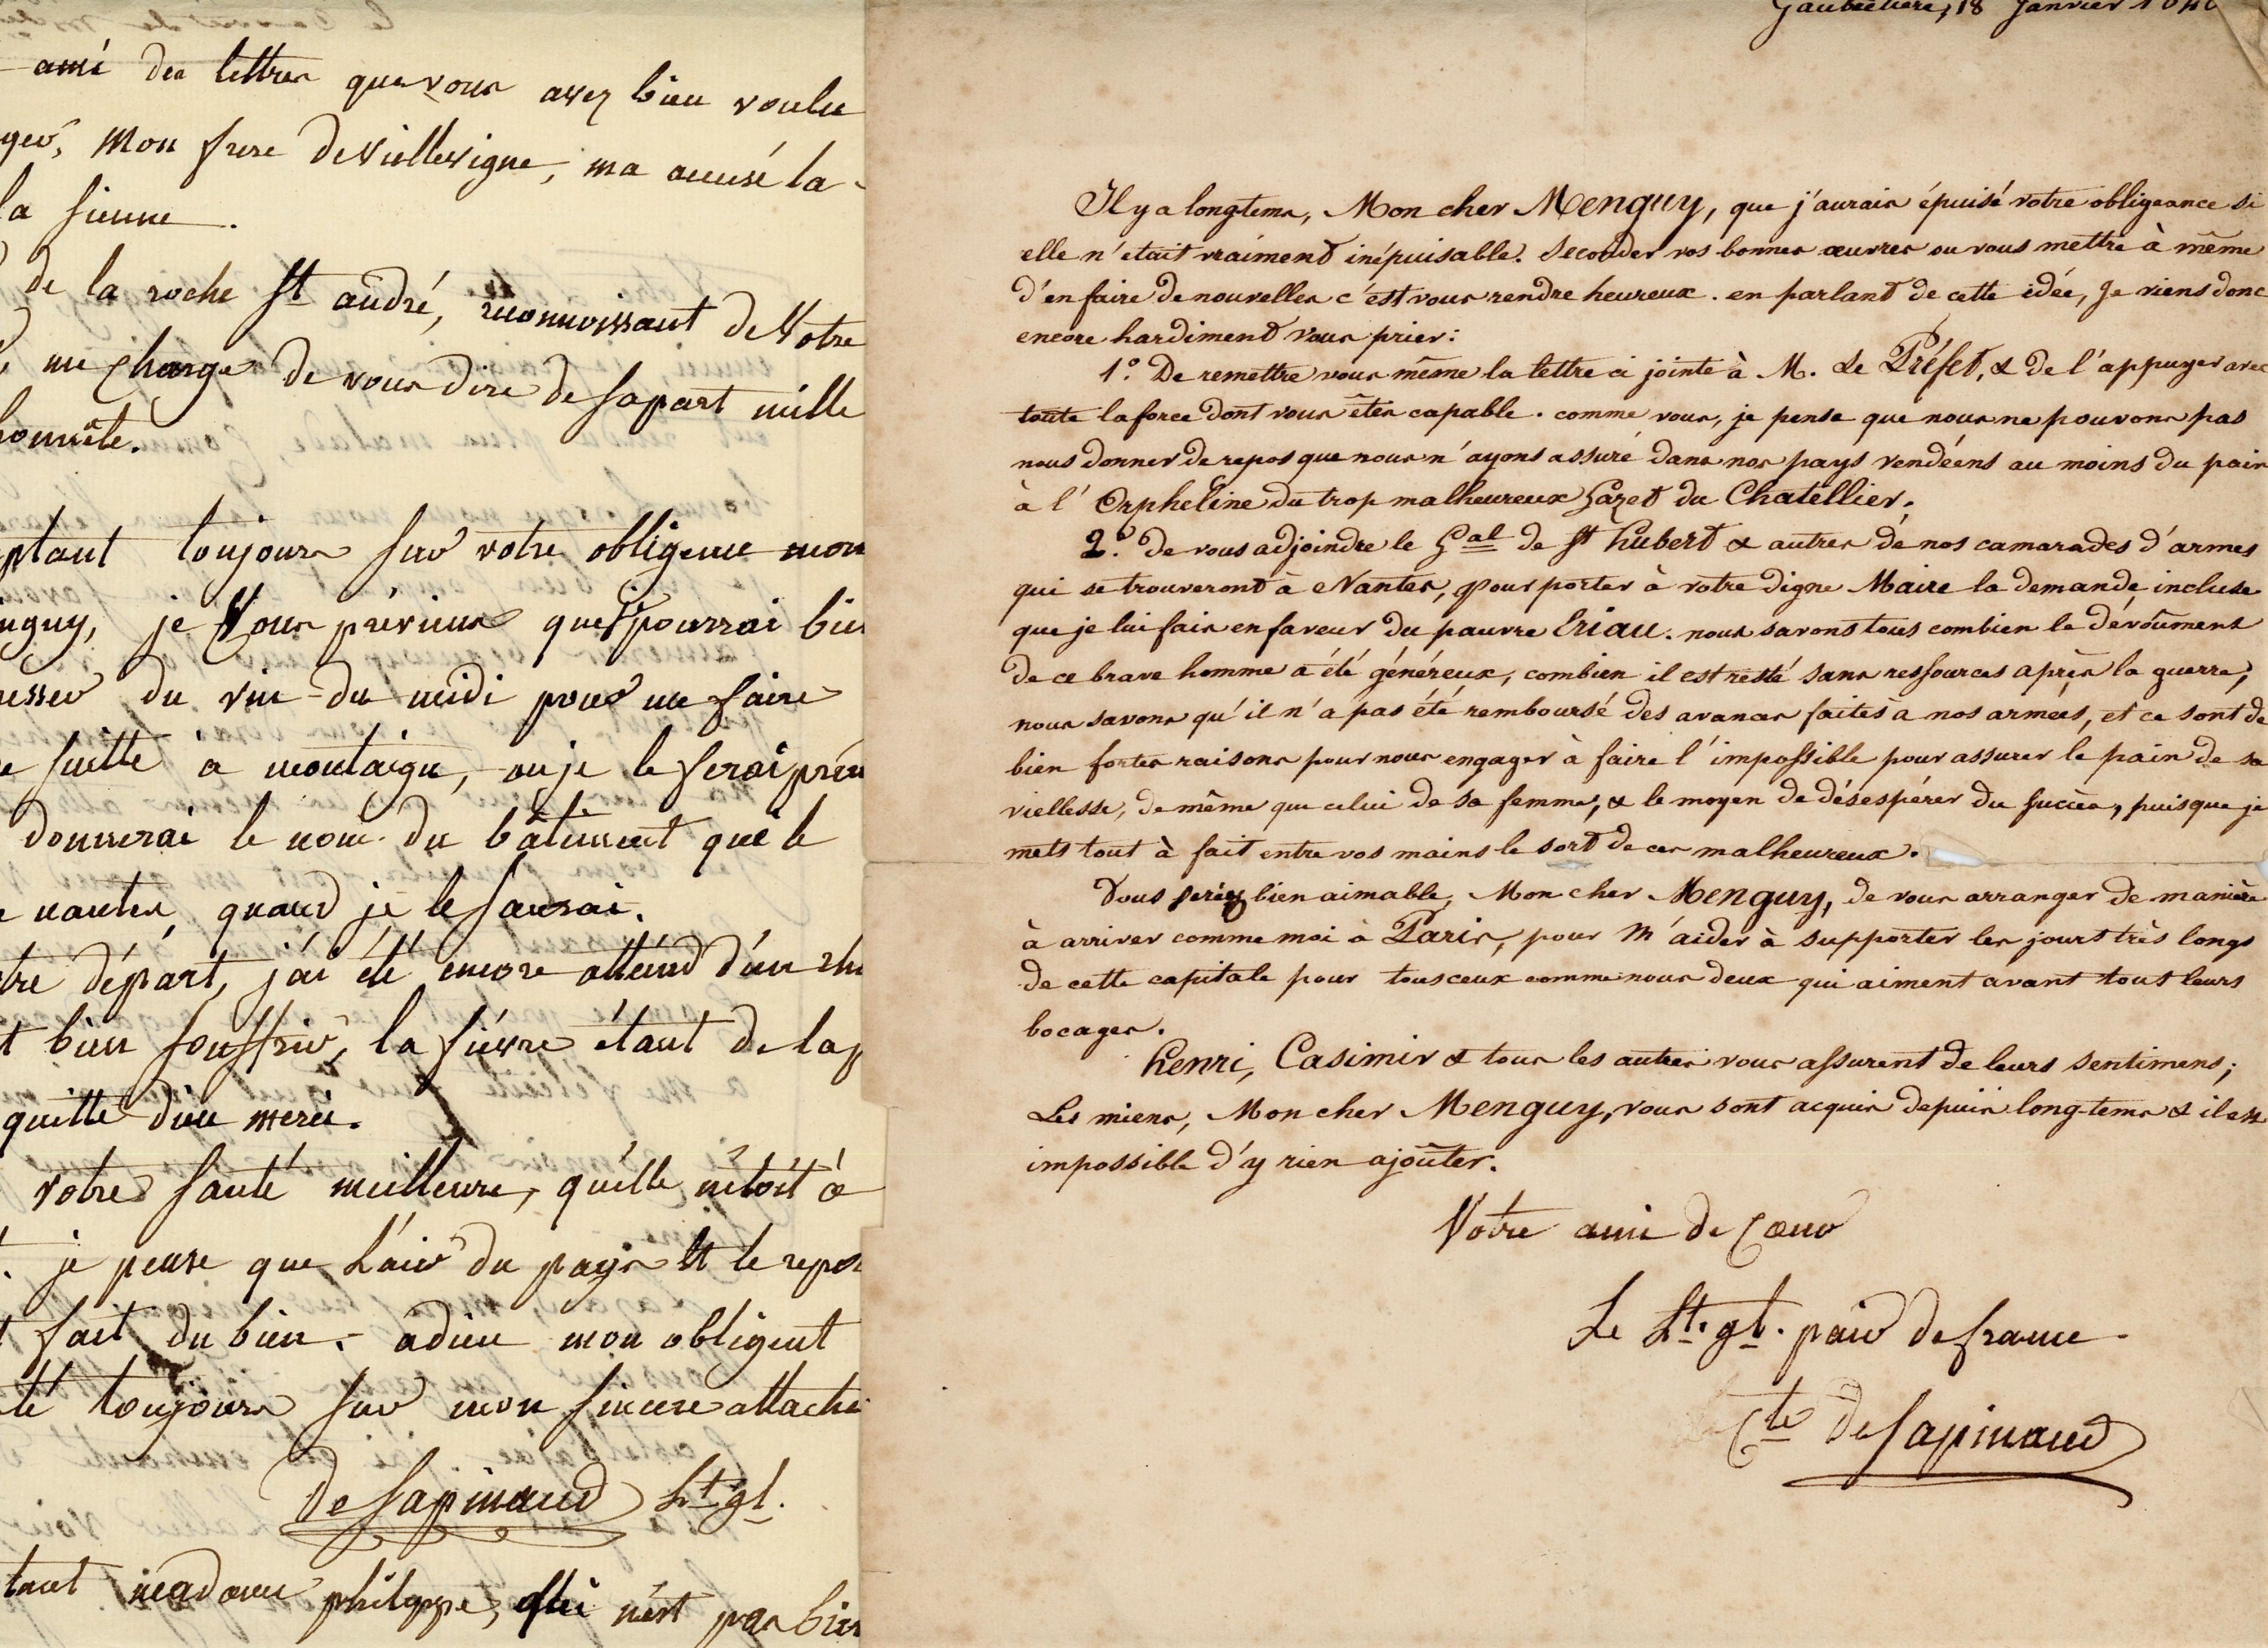 ami des lettres que vous avez bien voulu
ger, Mon frere de Viellevigne, ma accusé la
la sienne.
de la roche St andré, reconnoissant de Votre
me charge de vous dire de sa part mille
honnête.
ptant toujours sur votre obligence mon
nguy, je Vous préviens que je pourrai bien
esser du vin du midi pour me faire
suitte a montaigu, ou je le ferai pren
donnerai le nom du bâtiment que le
nantes, quand je le saurai.
tre départ, j'ai été encore atteind d'un rhu
t bien souffrir, la fièvre étant de la p
quitté dieu merci.
votre santé meilleure, qu'elle n'étoit a
je pense que L'air du pays et le repos
fait du bien. adieu mon obligent
té toujours sur mon sincere attache
De Sapinaud Lt gl.
tant madame philippe, qui n'est pas bien
Gaubretiere, 18 Janvier
Il y a longtems, Mon cher Menguy, que j'aurais épuisé votre obligeance si
elle n'était vraiment inépuisable. Seconder vos bonnes œuvres ou vous mettre à même
d'en faire de nouvelles c'est vous rendre heureux. en partant de cette idée, Je viens donc
encore hardiment Vous prier:
1º. De remettre vous même la lettre ci jointe à M. Le Préfet, & de l'appuyer avec
toute la force dont vous êtes capable. comme vous, je pense que nous ne pouvons pas
nous donner de repos que nous n'ayons assuré dans nos pays vendéens au moins du pain
à l'Orpheline du trop malheureux Gazet du Chatellier.
2º. De vous adjoindre le Gal de St hubert & autres de nos camarades d'armes
qui se trouveront à Nantes, pour porter à votre digne Maire la demande incluse
que je lui fais en faveur du pauvre Eriau. nous savons tous combien le dévoûment
de ce brave homme a été généreux, combien il est resté sans ressources après la guerre,
nous savons qu'il n'a pas été remboursé des avances faites à nos armées, et ce sont de
bien fortes raisons pour nous engager à faire l'impossible pour assurer le pain de sa
viellesse, de même que celui de sa femme, & le moyen de désespérer du succès, puisque je
mets tout à fait entre vos mains le sort de ces malheureux.
Vous seriez bien aimable, Mon cher Menguy, de vous arranger de manière
à arriver comme moi à Paris, pour M'aider à supporter les jours très longs
de cette capitale pour tous ceux comme nous deux qui aiment avant tout leurs
bocages.
henri, Casimir & tous les autres vous assurent de leurs sentimens;
Les miens, Mon cher Menguy, vous sont acquis depuis long-tems & il est
impossible d'y rien ajoûter.
Votre ami de Cœur
Le Lt. gl. pair de france
Cte De Sapinaud